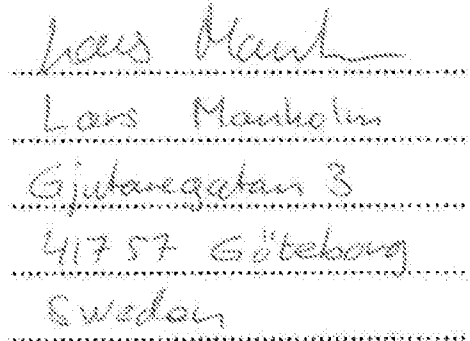 Lars
Lars Manholm
Gjutaregatan 3
417 57 Göteborg
Sweden